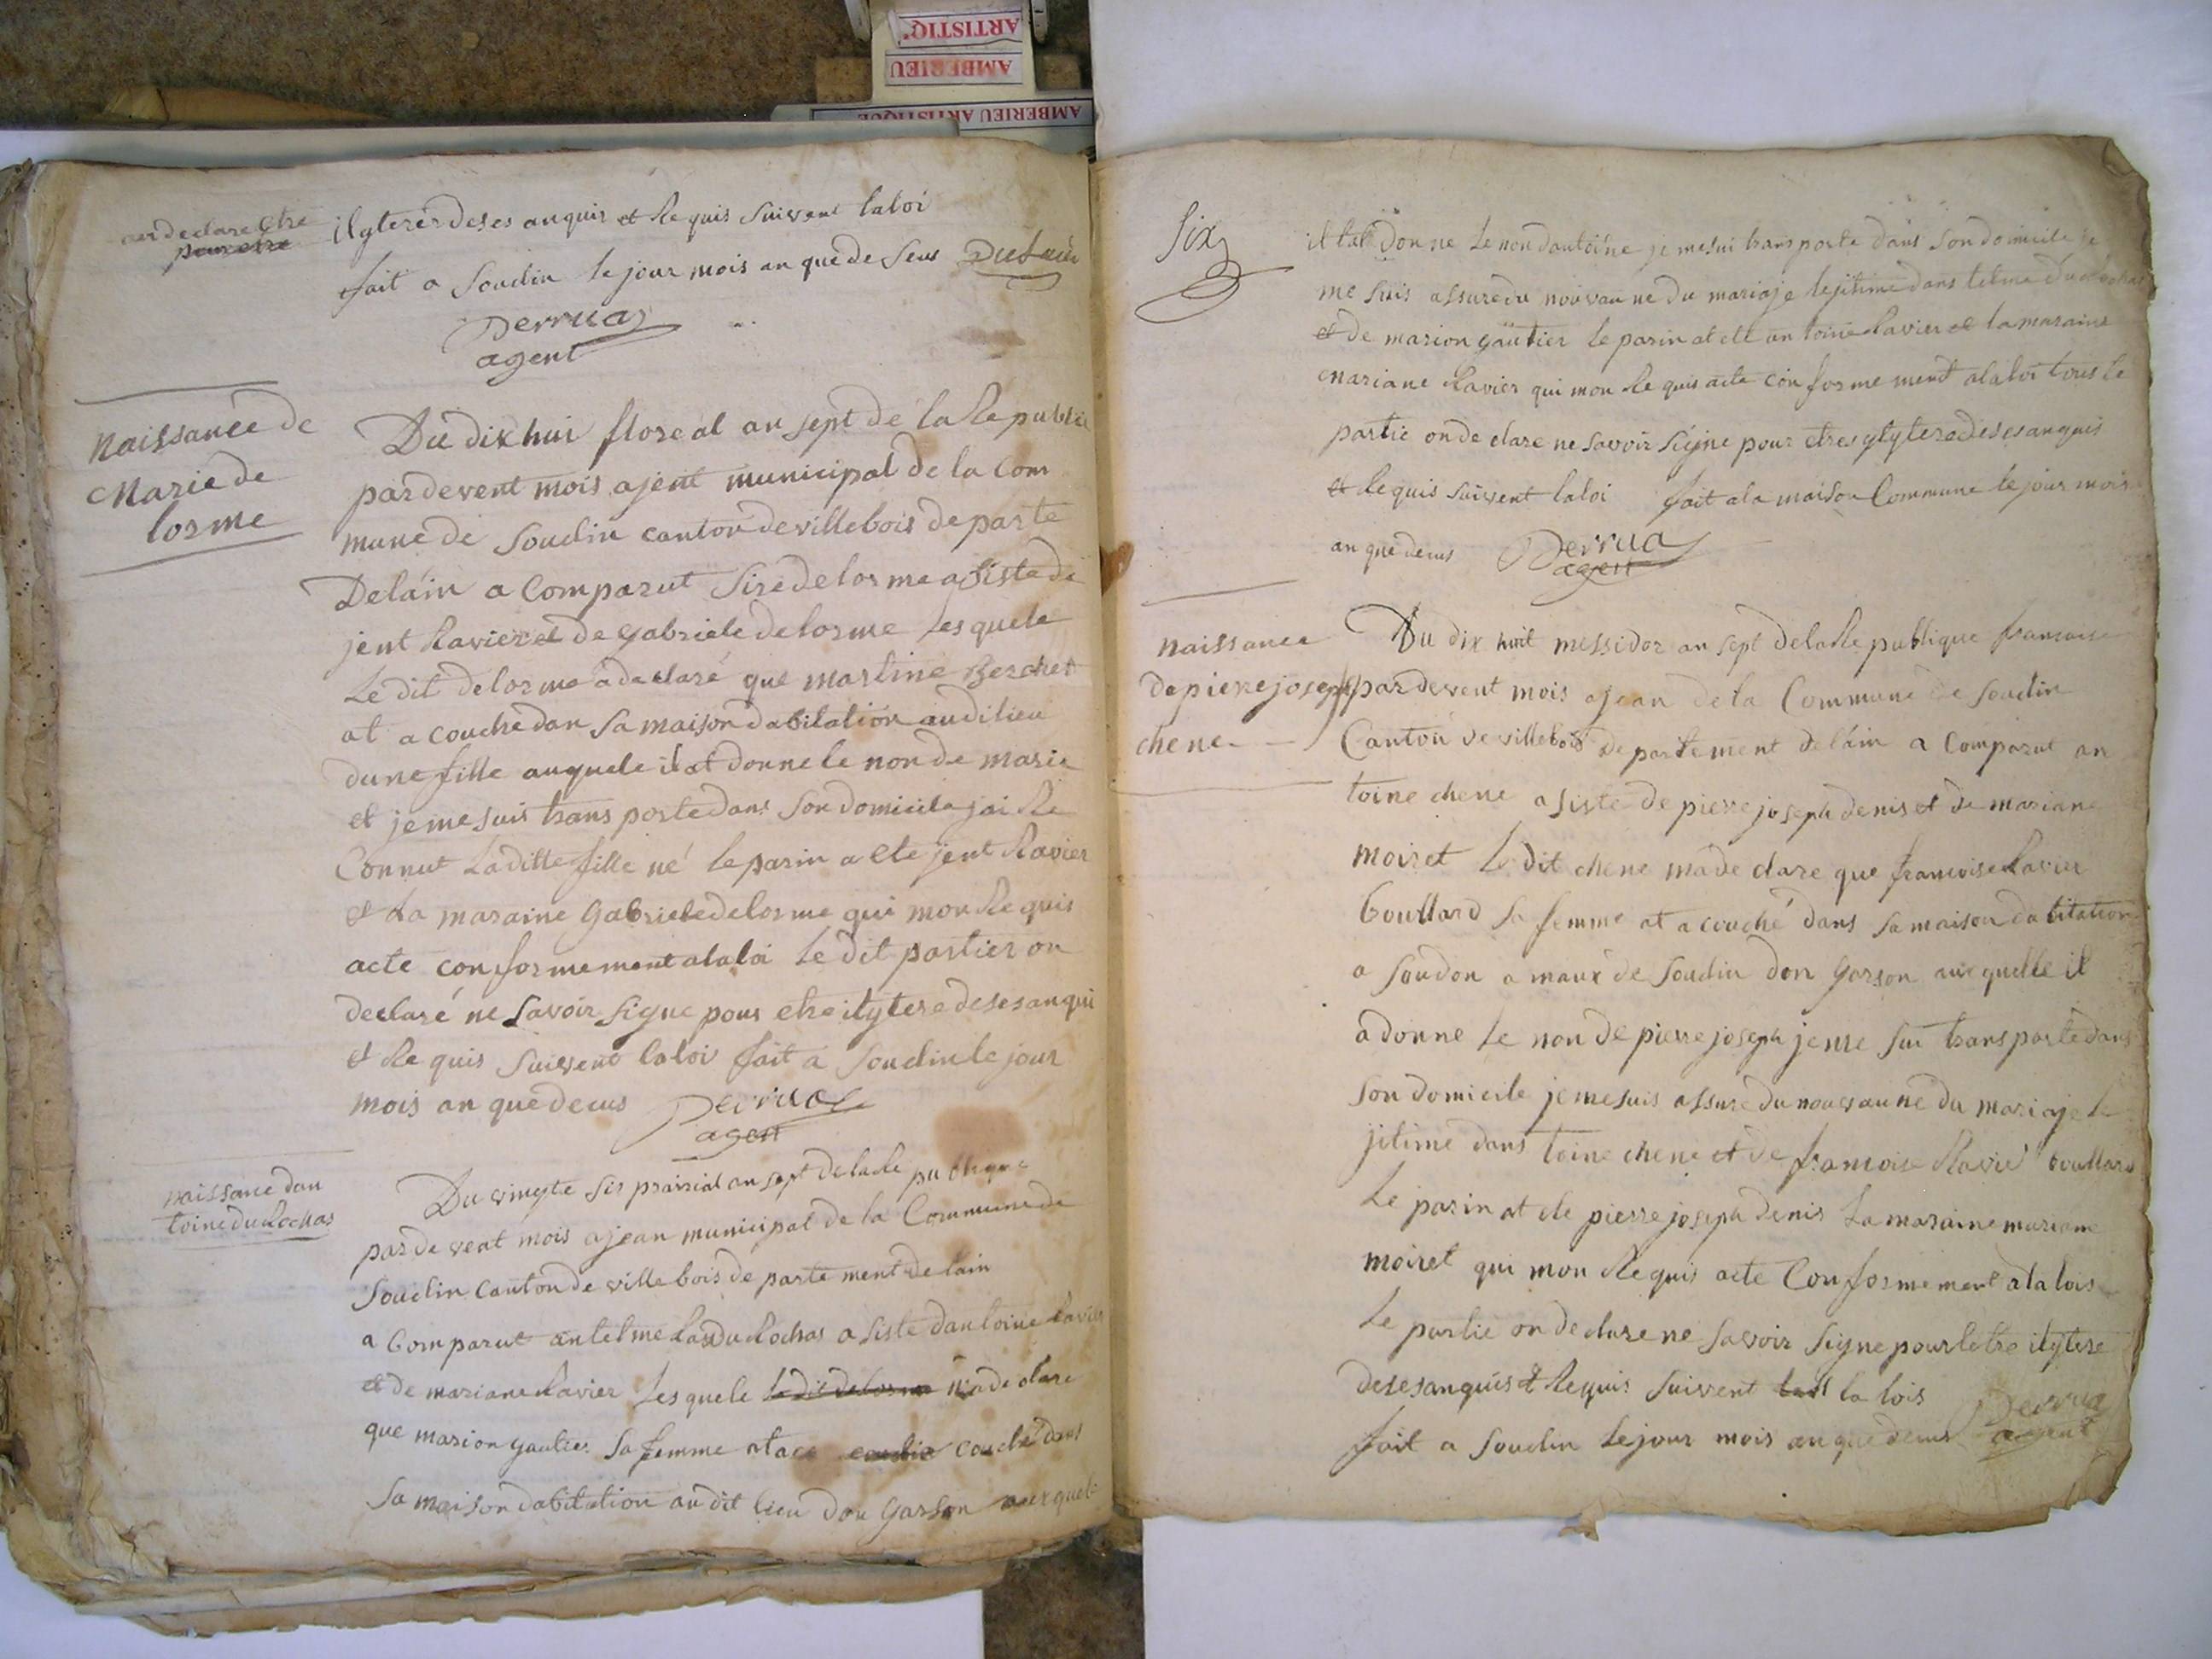 ARTISTIQ'
AMBERIEU
AMBERIEU ARTISTIQUE
declare etre
pour etre
ilyterer deses anquis et Requis suivent laloi
fait a Soudin le jour mois an que de seus
Derruaz
agent
Naissance de
Marie de
lorme
Du dix hui floreal an sept de la Republi
pardevent mois ajent municipal de la Com
mune de Soudin canton de villebois de parte
Delain a Comparut Sire delorme asiste de
jent Ravier et de gabriele delorme lesquele
Le dit delorme a declaré que martine Berchet
at a couche dan sa maison dabitation audi lieu
dune fille auquele il at donne le non de marie
et jeme suis trans porte dans son domicile jai Re
Connut laditte fille né le parin a ete jent Ravier
et la maraine Gabriele delorme qui mon Requis
acte conformement alaloi le dit partier on
declaré ne savoir signe pour etre ilytere desesanqui
et Re quis suivent laloi fait a Soudin le jour
mois an que decus Derruaz
agent
naissance dan
toine du Rochas
Du vingte sis prairial an sept de la Re publique
par de vent mois ajean municipal de la Commune de
Soudin canton de villebois de parte ment de lain
a Comparut antelme du Rochas a siste dantoine Ravier
et de mariane Ravier lesquele le dit delorme ma de clare
que marion gautier sa femme at ace couche couché dans
sa maison dabitation audit lieu don Garson auxquele
Six
il tat donne le non dantoine je me sui trans porte dans son domicile je
me suis assure du nouvau ne du mariaje lejitime dans telme du Rochas
et de marion gautier le parin at ete an toine Ravier et la maraine
Mariane Ravier qui mon Re quis acte con forme ment alaloi tous le
partie onde clare ne savoir signe pour etre ylytere deses anquis
et Requis suivent laloi fait ala maison Commune le jour mois
an que decus Derruaz
agent
naissance
de piere joseph
chene
Du dix huit messidor an sept delaRe publique francaise
pardevent mois ajean de la Commune de Soudin
Canton de villebois de partement delain a Comparut an
toine chene asiste de piere joseph denis et de mariane
moiret le dit chene made clare que francoise Ravier
boullard sa femme at a couché dans sa maison dabitation
a Soudon amaux de Soudin don Garson aux quelle il
a donne le non de piere joseph jeme sui trans porte dans
son domicile jeme suis assure du nouvau ne du mariaje le
jitime dans toine chene et de francoise Ravie boullard
le parin at ete pierre joseph denis la maraine mariane
moiret qui mon Requis acte Conforme ment alalois
le partie on declare ne savoir signe pour letre ilytere
desesanquis et Requis suivent la lois
fait a Soudin le jour mois an que decus Derruaz
agent